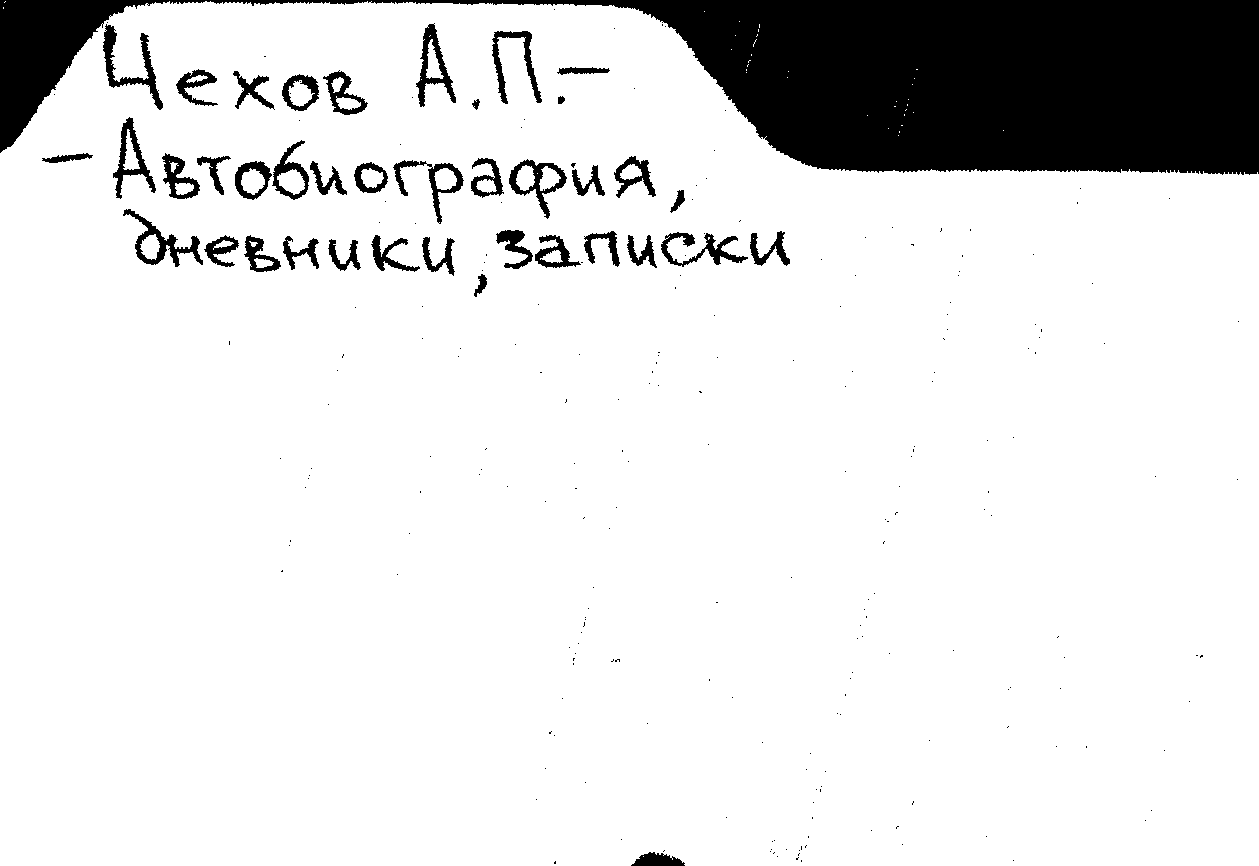 Чехов А.П.–
– Автобиография,
дневники, записки